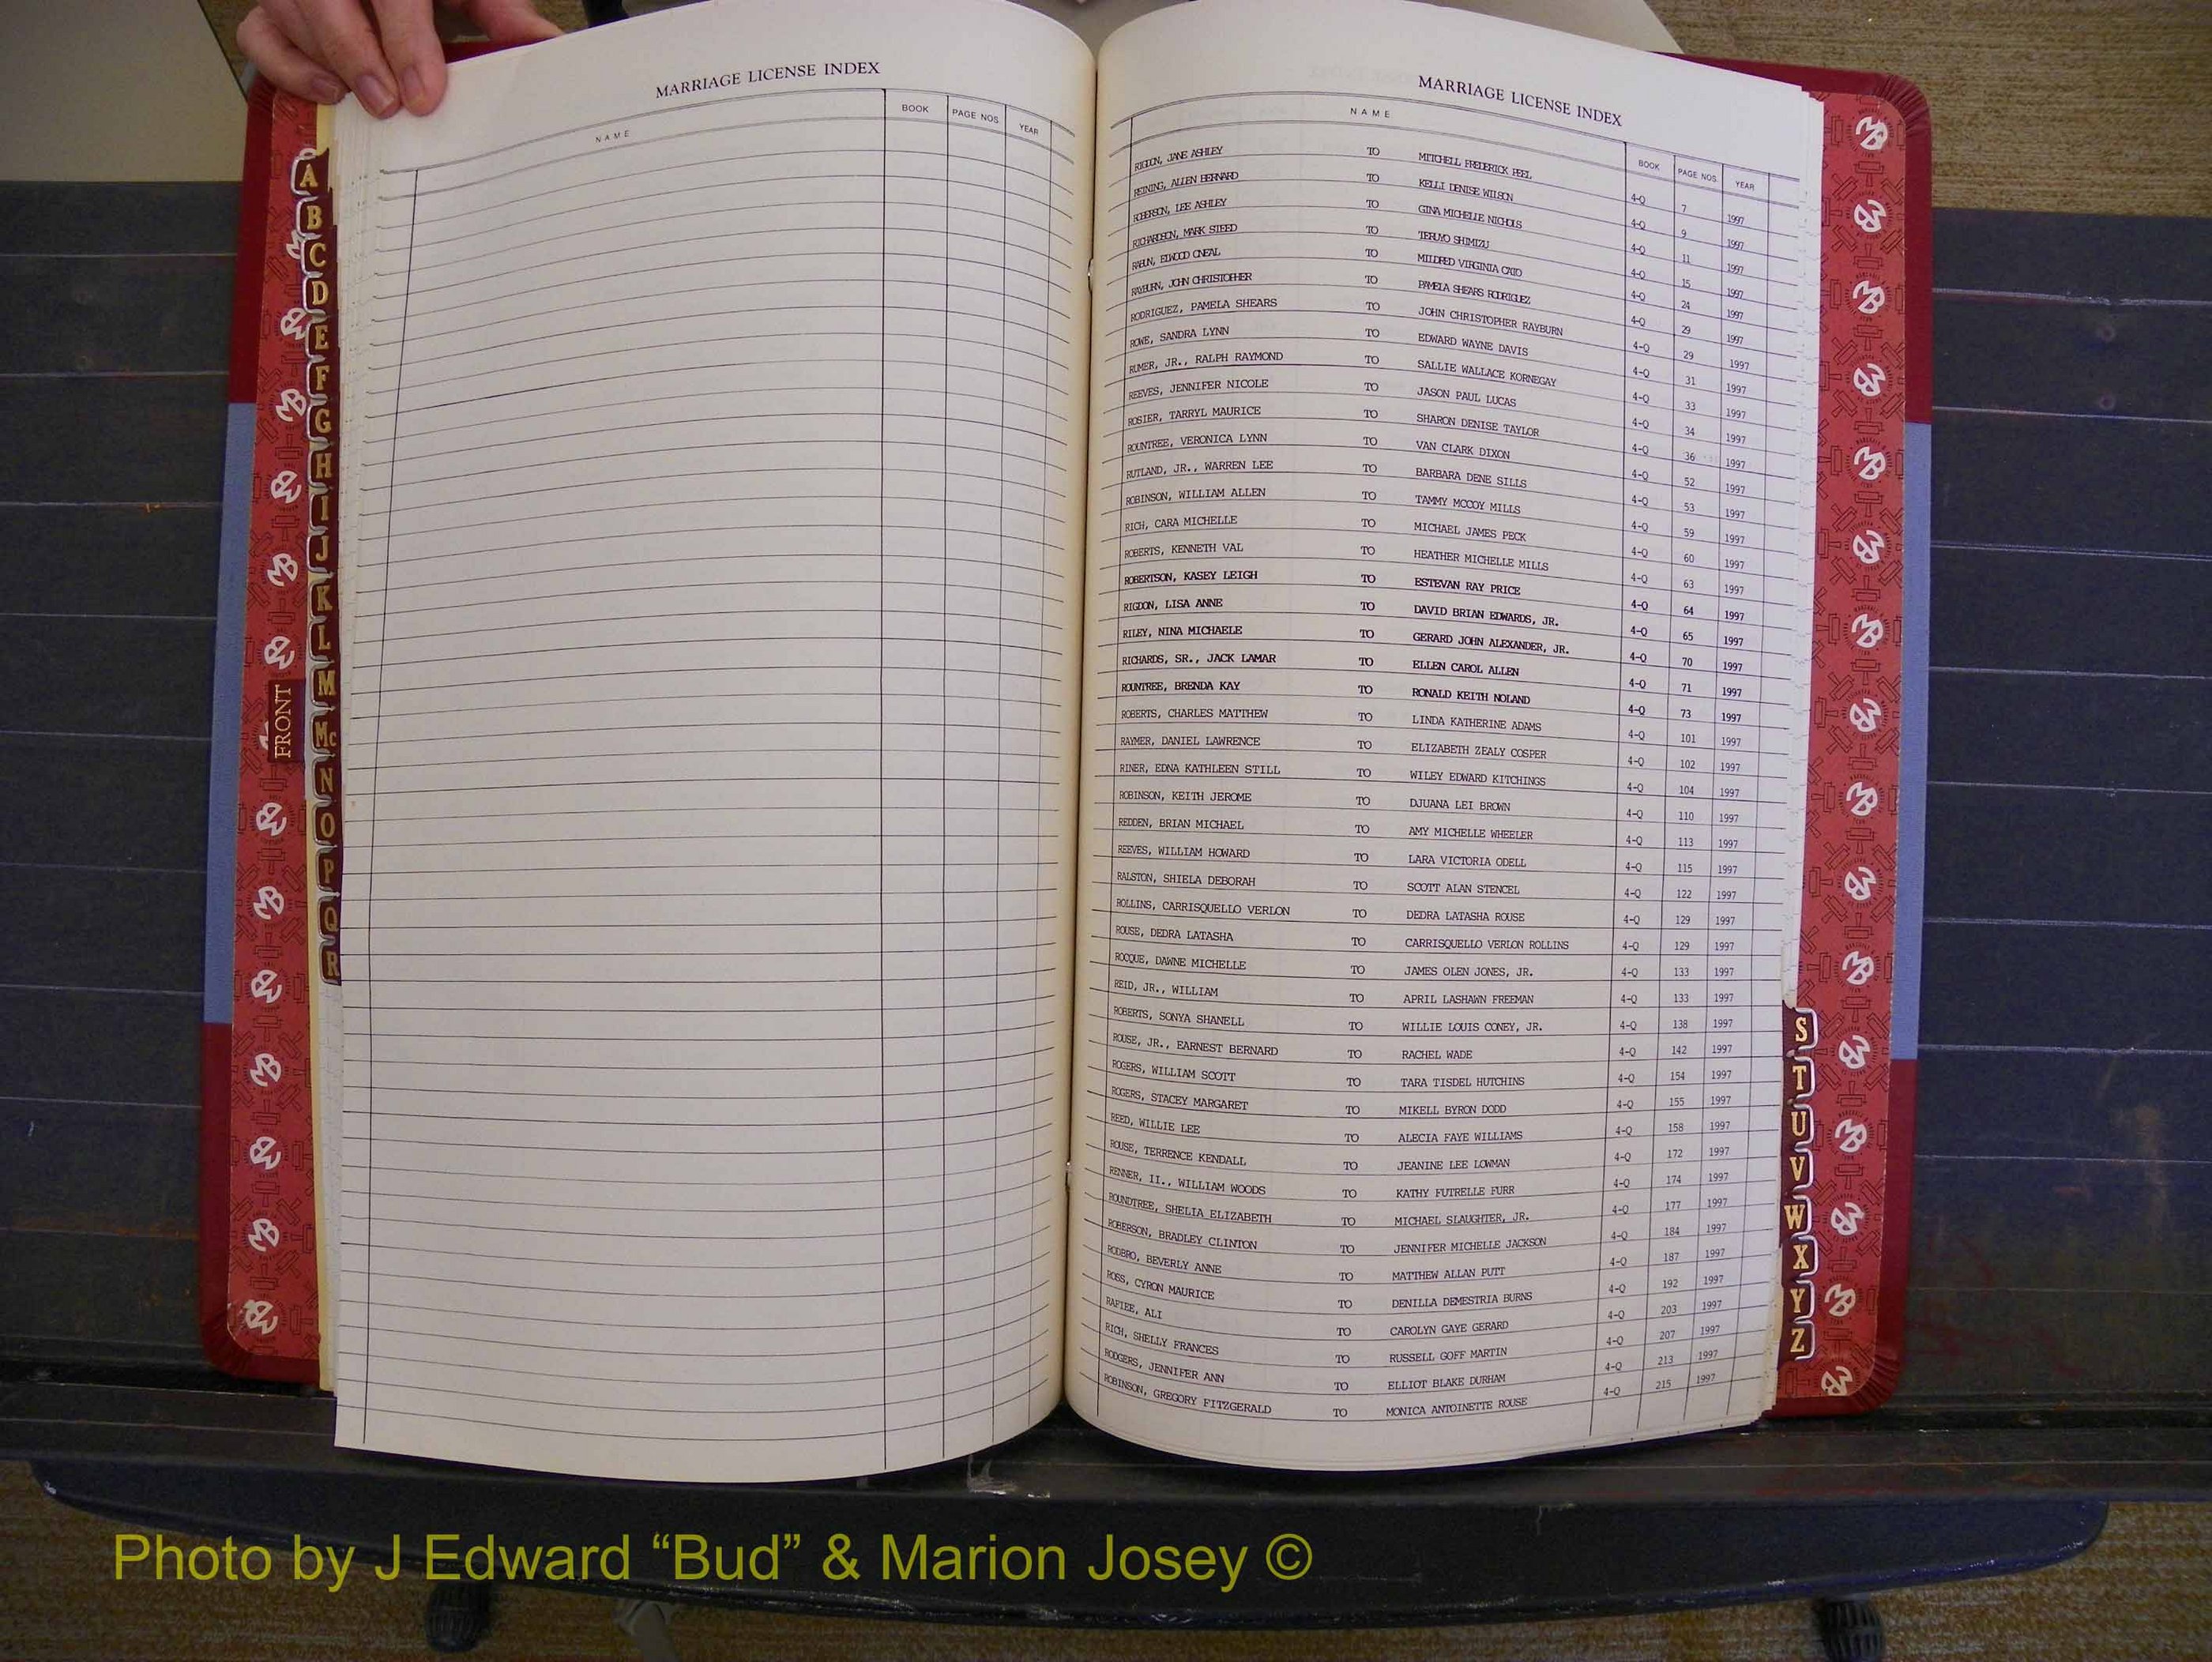 MARRIAGE LICENSE INDEX
NAME BOOK PAGE NOS. YEAR
A
B
C
D
E
F
G
H
I
J
K
L
M
Mc
N
O
P
Q
R
FRONT
MARRIAGE LICENSE INDEX
NAME BOOK PAGE NOS. YEAR
RIGDON, JANE ASHLEY TO MITCHELL FREDERICK PEEL 4-Q 7 1997
REINING, ALLEN BERNARD TO KELLI DENISE WILSON 4-Q 9 1997
ROBERSON, LEE ASHLEY TO GINA MICHELLE NICHOLS 4-Q 11 1997
RICHARDSON, MARK STEED TO TERUYO SHIMIZU 4-Q 15 1997
RABUN, ELWOOD ONEAL TO MILDRED VIRGINIA CATO 4-Q 24 1997
RAYBURN, JOHN CHRISTOPHER TO PAMELA SHEARS RODRIGUEZ 4-Q 29 1997
RODRIGUEZ, PAMELA SHEARS TO JOHN CHRISTOPHER RAYBURN 4-Q 29 1997
ROWE, SANDRA LYNN TO EDWARD WAYNE DAVIS 4-Q 31 1997
RUMER, JR., RALPH RAYMOND TO SALLIE WALLACE KORNEGAY 4-Q 33 1997
REEVES, JENNIFER NICOLE TO JASON PAUL LUCAS 4-Q 34 1997
ROSIER, TARRYL MAURICE TO SHARON DENISE TAYLOR 4-Q 36 1997
ROUNTREE, VERONICA LYNN TO VAN CLARK DIXON 4-Q 52 1997
RUTLAND, JR., WARREN LEE TO BARBARA DENE SILLS 4-Q 53 1997
ROBINSON, WILLIAM ALLEN TO TAMMY MCCOY MILLS 4-Q 59 1997
RICH, CARA MICHELLE TO MICHAEL JAMES PECK 4-Q 60 1997
ROBERTS, KENNETH VAL TO HEATHER MICHELLE MILLS 4-Q 63 1997
ROBERTSON, KASEY LEIGH TO ESTEVAN RAY PRICE 4-Q 64 1997
RIGDON, LISA ANNE TO DAVID BRIAN EDWARDS, JR. 4-Q 65 1997
RILEY, NINA MICHAELE TO GERARD JOHN ALEXANDER, JR. 4-Q 70 1997
RICHARDS, SR., JACK LAMAR TO ELLEN CAROL ALLEN 4-Q 71 1997
ROUNTREE, BRENDA KAY TO RONALD KEITH NOLAND 4-Q 73 1997
ROBERTS, CHARLES MATTHEW TO LINDA KATHERINE ADAMS 4-Q 101 1997
RAYMER, DANIEL LAWRENCE TO ELIZABETH ZEALY COSPER 4-Q 102 1997
RINER, EDNA KATHLEEN STILL TO WILEY EDWARD KITCHINGS 4-Q 104 1997
ROBINSON, KEITH JEROME TO DJUANA LEI BROWN 4-Q 110 1997
REDDEN, BRIAN MICHAEL TO AMY MICHELLE WHEELER 4-Q 113 1997
REEVES, WILLIAM HOWARD TO LARA VICTORIA ODELL 4-Q 115 1997
RALSTON, SHIELA DEBORAH TO SCOTT ALAN STENCEL 4-Q 122 1997
ROLLINS, CARRISQUELLO VERLON TO DEDRA LATASHA ROUSE 4-Q 129 1997
ROUSE, DEDRA LATASHA TO CARRISQUELLO VERLON ROLLINS 4-Q 129 1997
ROCQUE, DAWNE MICHELLE TO JAMES OLEN JONES, JR. 4-Q 133 1997
REID, JR., WILLIAM TO APRIL LASHAWN FREEMAN 4-Q 133 1997
ROBERTS, SONYA SHANELL TO WILLIE LOUIS CONEY, JR. 4-Q 138 1997
ROUSE, JR., EARNEST BERNARD TO RACHEL WADE 4-Q 142 1997
ROGERS, WILLIAM SCOTT TO TARA TISDEL HUTCHINS 4-Q 154 1997
ROGERS, STACEY MARGARET TO MIKELL BYRON DODD 4-Q 155 1997
REED, WILLIE LEE TO ALECIA FAYE WILLIAMS 4-Q 158 1997
ROUSE, TERRENCE KENDALL TO JEANINE LEE LOWMAN 4-Q 172 1997
RENNER, II., WILLIAM WOODS TO KATHY FUTRELLE FURR 4-Q 174 1997
ROUNDTREE, SHELIA ELIZABETH TO MICHAEL SLAUGHTER, JR. 4-Q 177 1997
ROBERSON, BRADLEY CLINTON TO JENNIFER MICHELLE JACKSON 4-Q 184 1997
RODBRO, BEVERLY ANNE TO MATTHEW ALLAN PUTT 4-Q 187 1997
ROSS, CYRON MAURICE TO DENILLA DEMESTRIA BURNS 4-Q 192 1997
RAFIEE, ALI TO CAROLYN GAYE GERARD 4-Q 203 1997
RICH, SHELLY FRANCES TO RUSSELL GOFF MARTIN 4-Q 207 1997
RODGERS, JENNIFER ANN TO ELLIOT BLAKE DURHAM 4-Q 213 1997
ROBINSON, GREGORY FITZGERALD TO MONICA ANTOINETTE ROUSE 4-Q 215 1997
S
T
U
V
W
X
Y
Z
Photo by J Edward “Bud” & Marion Josey ©